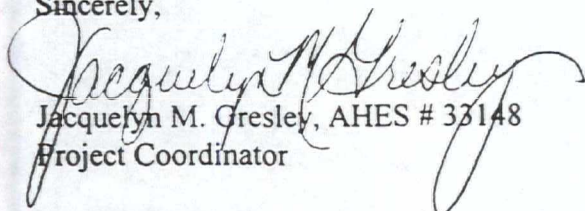 Sincerely,
Jacquelyn M Gresley
Jacquelyn M. Gresley, AHES # 33148
Project Coordinator